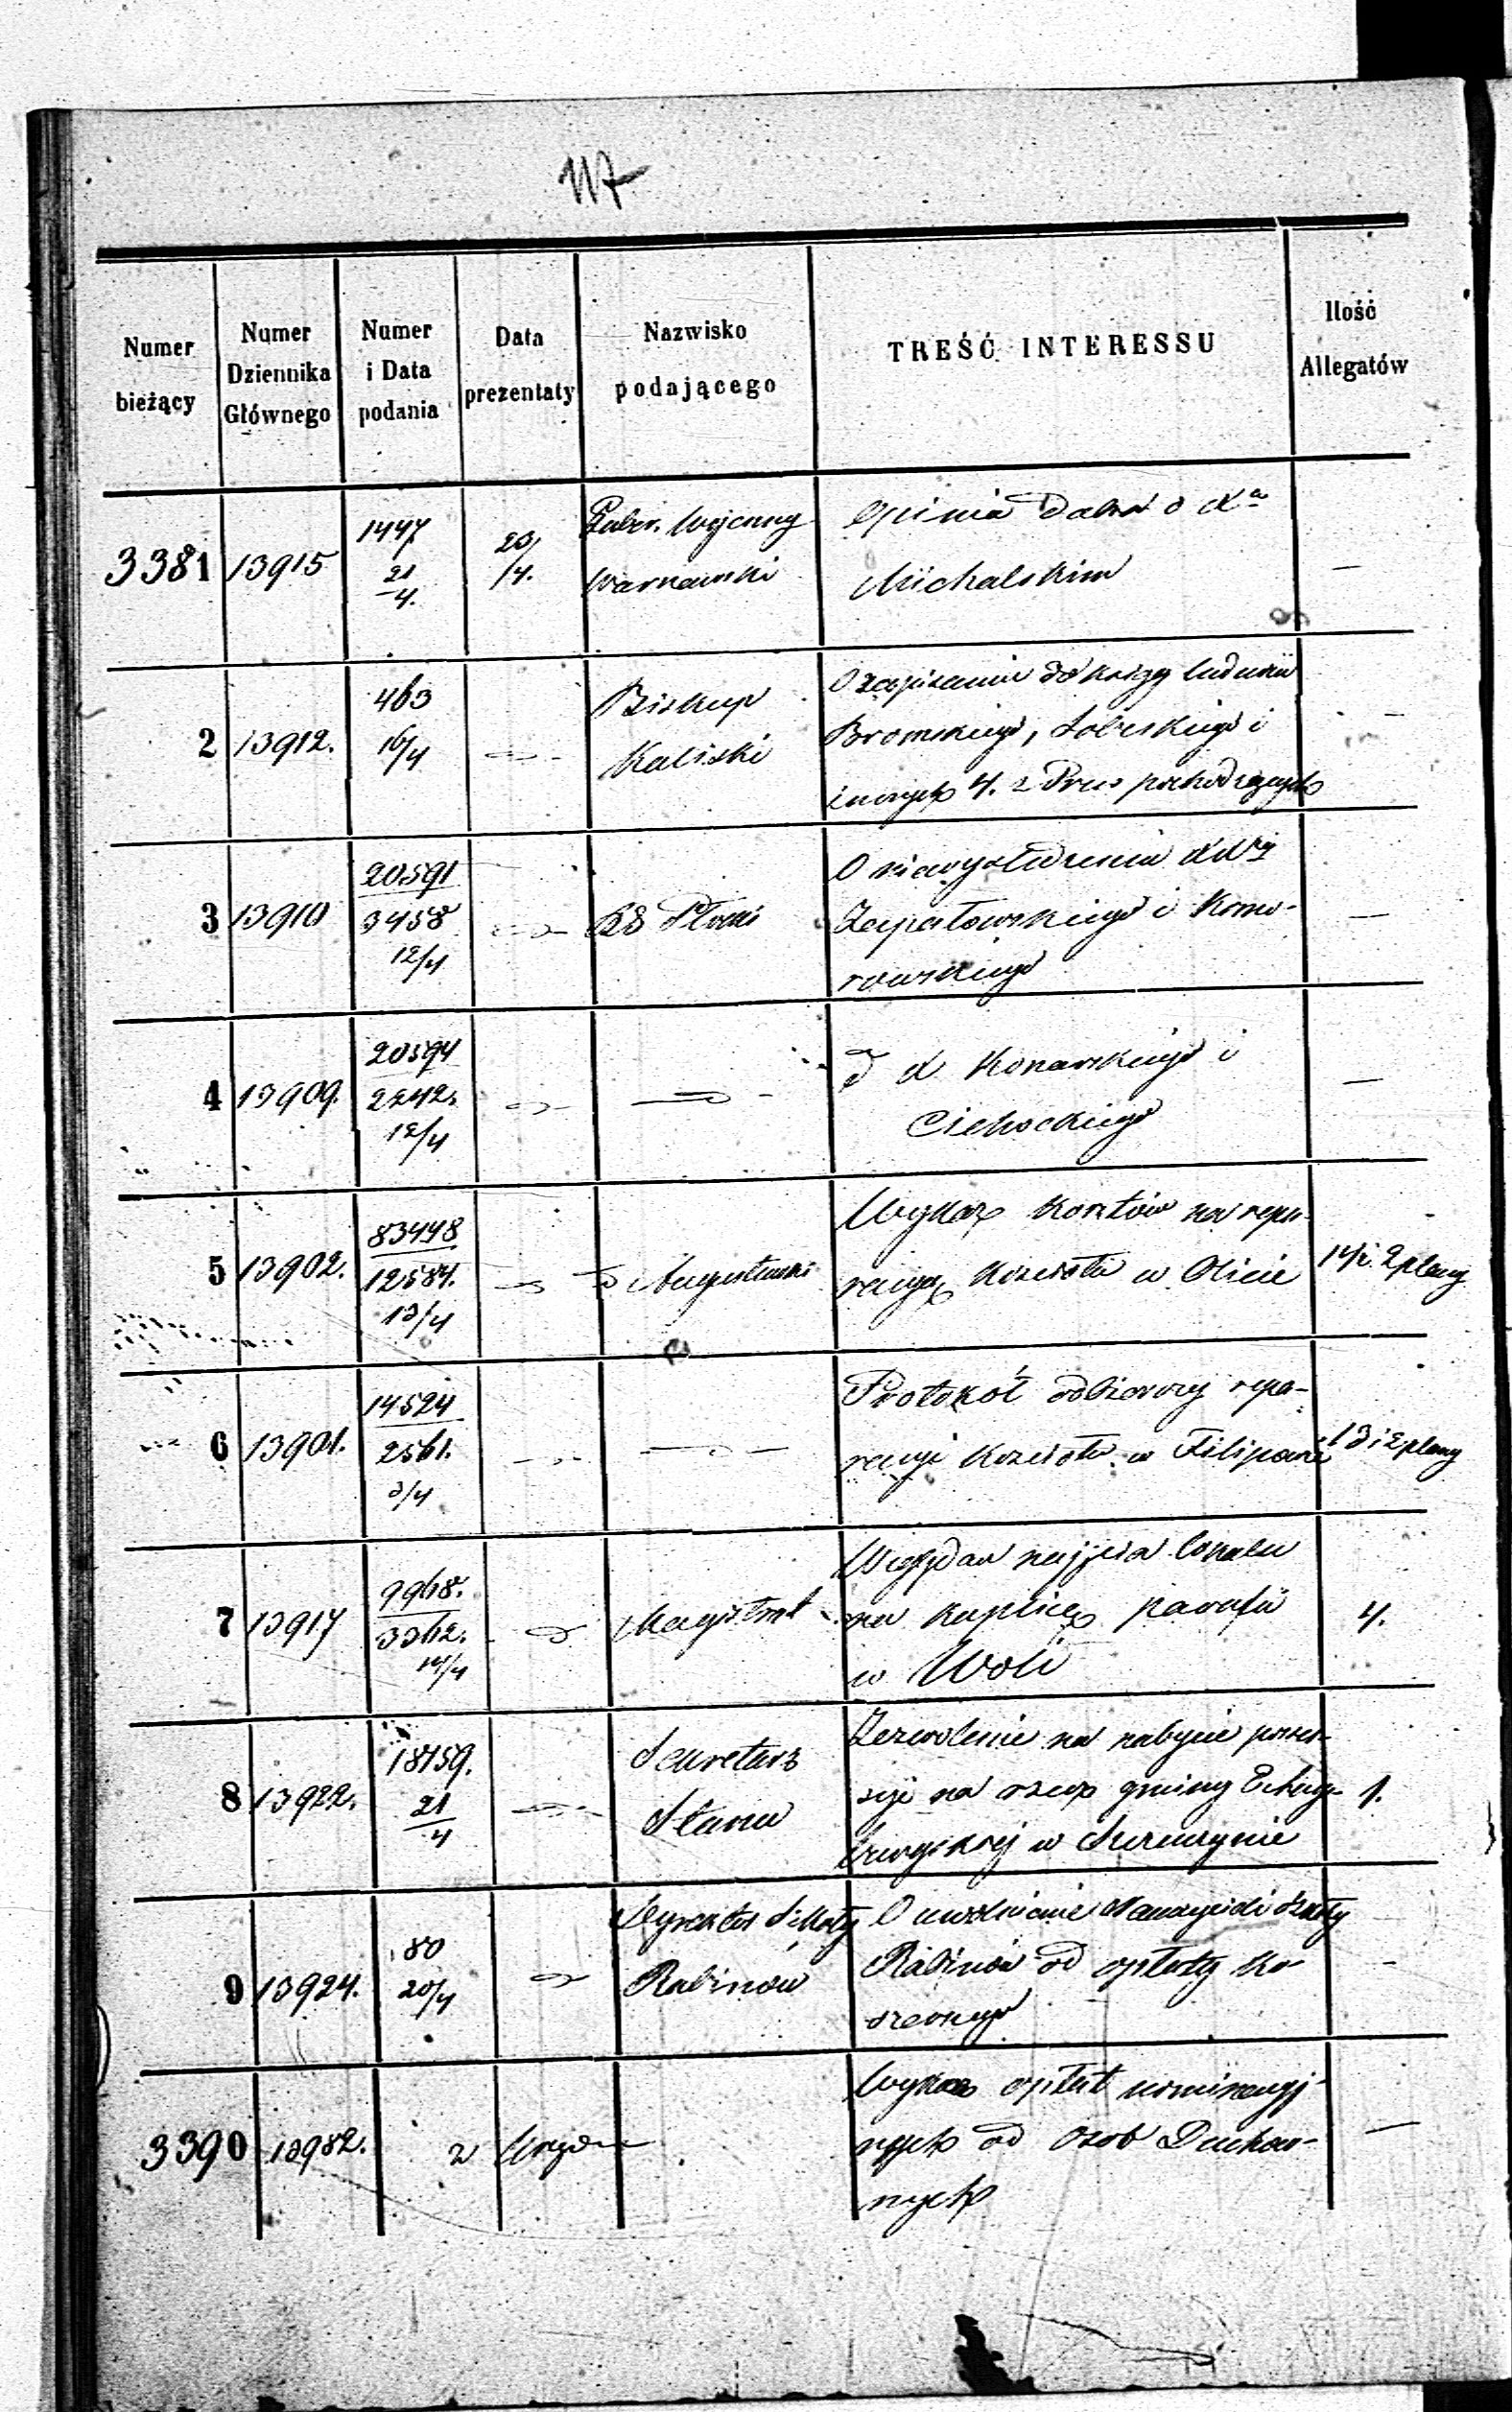 117
Numer bieżący
Numer Dziennika Głównego
Numer i Data podania
Data prezentaty
Nazwisko podającego
TREŚĆ INTERESSU
Ilość Allegatów
3381 13915 1447 21/4. 23/4. Guber. Wojenny
Warszawski
Opinia dobra o Xa
Michalskim
—
2 13912. 463 16/4 Biskup
Kaliski
O zapisaniu do księg ludności
i
innych 4. z Prus pochodzących
—
3 13910 20591 3458 12/4 RG Płocki
O niewyśledzeniu
i Komo-
rowskiego
—
4 13909. 20594 2242. 12/4
d d Konarskiego i
Cichockiego
—
5 13902. 83448 12584. 13/4 d Augustowski
Wykaz kosztów na repa-
racyę kościoła w Olicie
14 i 2 plany
6 13901. 14524 2561. 3/4
Protokół odbiorczy repa-
racyi kościoła w Filipowie
13 i 2 plany
7 13917 9968. 3362. 14/4 Magistrat
Względem najęcia lokalu
na kaplicę parafii
w Woli
4.
8 13922. 18159. 21/4 Sekretarz
Stanu
Zezwolenie na nabycie posses-
syi na rzecz gminy Ewang-
w Szczuczynie
1.
9 13924. 80 20/4 Dyrektor Szkoły
Rabinów
O uwolnienie Nauczycieli Szkoły
Rabinów od opłaty ko-
szernego
—
3390 13982. z Urzędu
Wykaz opłat nominacyj-
nych od Osob Duchow-
nych
—